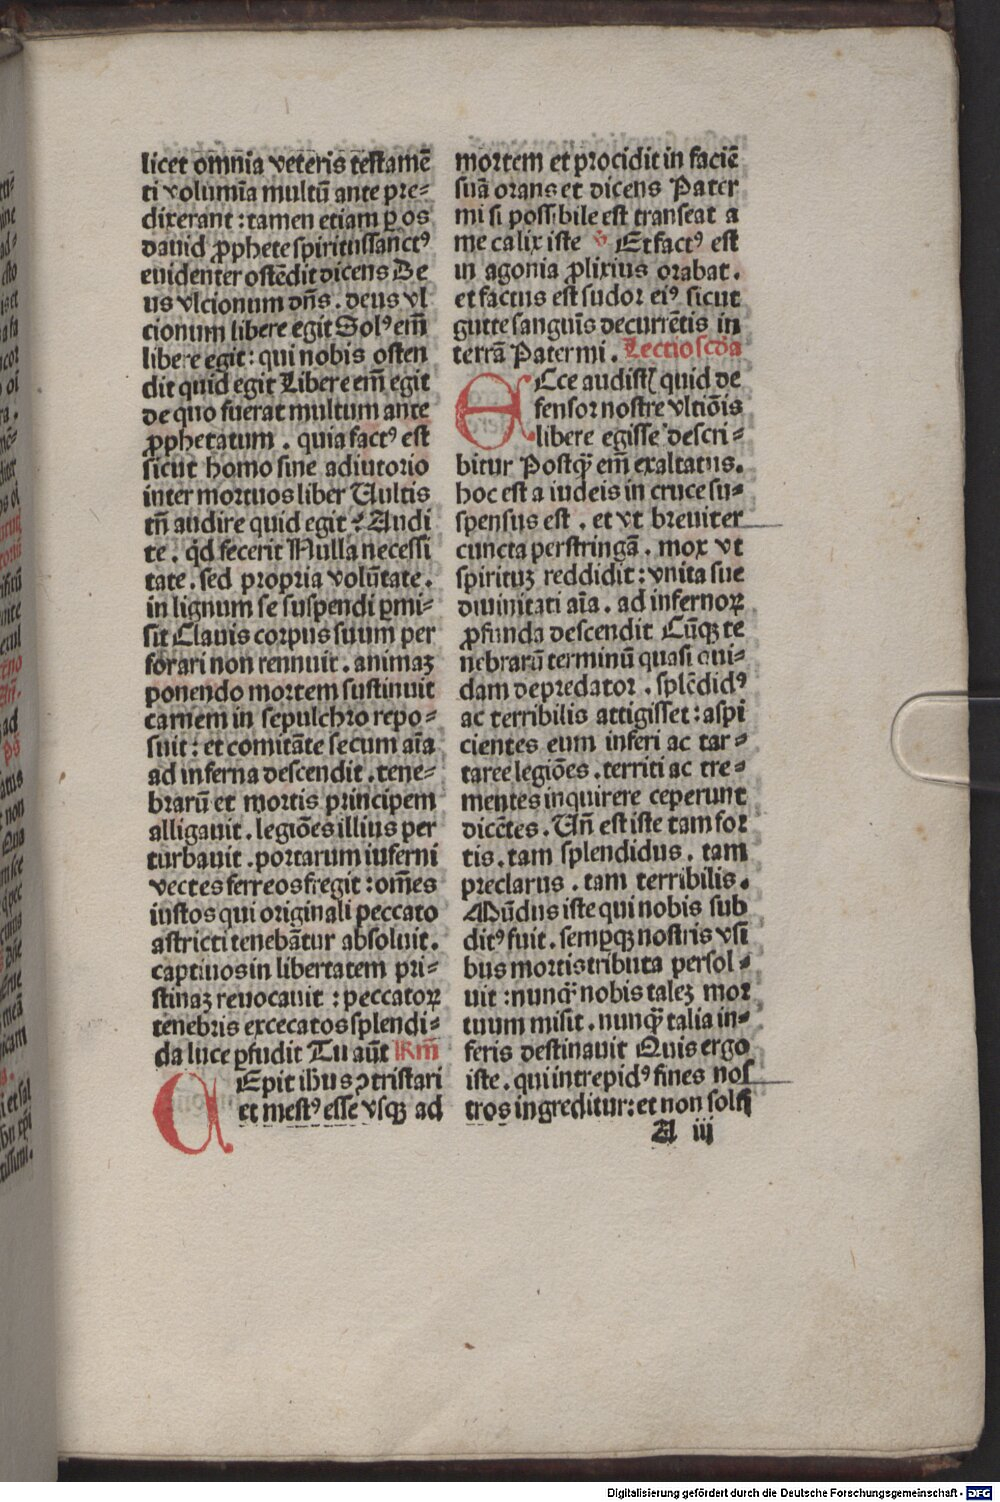 licet omnia veteris testamē
ti volumīa multū ante pre⸗
dixerant : tamen etiam ꝑ os
dauid ꝓphete spiritussanctꝰ
euidenter ostēdit dicens De
us vlcionum dn̄s . deus vl
cionum libere egit Solꝰ em̄
libere egit : qui nobis osten
dit quid egit Libere em̄ egit
de quo fuerat multum ante
ꝓphetatum . quia factꝰ est
sicut homo sine adiutorio
inter mortuos liber Uultis
tn̄ audire quid egit ? Audi
te . qd̄ fecerit Nulla necessi
tate . sed propria volūtate .
in lignum se suspendi ꝑmi⸗
sit Clauis corpus suum per
forari non rennuit . animaꝫ
ponendo mortem sustinuit
carnem in sepulchro repo⸗
suit : et comitāte secum aīa
ad inferna descendit . tene⸗
brarū et mortis principem
alligauit . legiōes illius per
turbauit . portarum iuferni
vectes ferreos fregit : om̄es
iustos qui originali peccato
astricti tenebātur absoluit .
captiuos in libertatem pri⸗
stinaꝫ reuocauit : peccatoꝝ
tenebris excecatos splendi⸗
da luce ꝑfudit Tu aūt Rm̄
CEpit ihus ꝯtristari
et mestꝰ esse vsqꝫ ad
mortem et procidit in faciē
suā orans et dicens Pater
mi si possibile est transeat a
me calix iste ℣ Et factꝰ est
in agonia ꝓlixius orabat .
et factus est sudor eiꝰ sicut
gutte sanguīs decurrētis in
terrā Pater mi . Lectio scda
ECce audistꝭ quid de
fensor nostre vltiōis
libere egisse descri⸗
bitur Postqꝫ̄ em̄ exaltatus .
hoc est a iudeis in cruce su⸗
spensus est . et vt breuiter
cuncta perstringā . mox vt
spirituꝫ reddidit : vnita sue
diuinitati aīa . ad infernoꝝ
ꝓfunda descendit Cūqꝫ te
nebrarū terminū quasi qui⸗
dam depredator . splēdidꝰ
ac terribilis attigisset : aspi
cientes eum inferi ac tar⸗
taree legiōes . territi ac tre⸗
mentes inquirere ceperunt
dicētes . Un̄ est iste tam for
tis . tam splendidus . tam
preclarus . tam terribilis .
Mūdus iste qui nobis sub
ditꝰ fuit . semꝑqꝫ nostris vsi
bus mortis tributa persol⸗
uit : nunqꝫ̄ nobis taleꝫ mor
tuum misit . nunqꝫ̄ talia in⸗
feris destinauit Quis ergo
iste . qui intrepidꝰ fines nos
tros ingreditur : et non solū
A iij
Digitalisierung gefördert durch die Deutsche Forschungsgemeinschaft - DFG